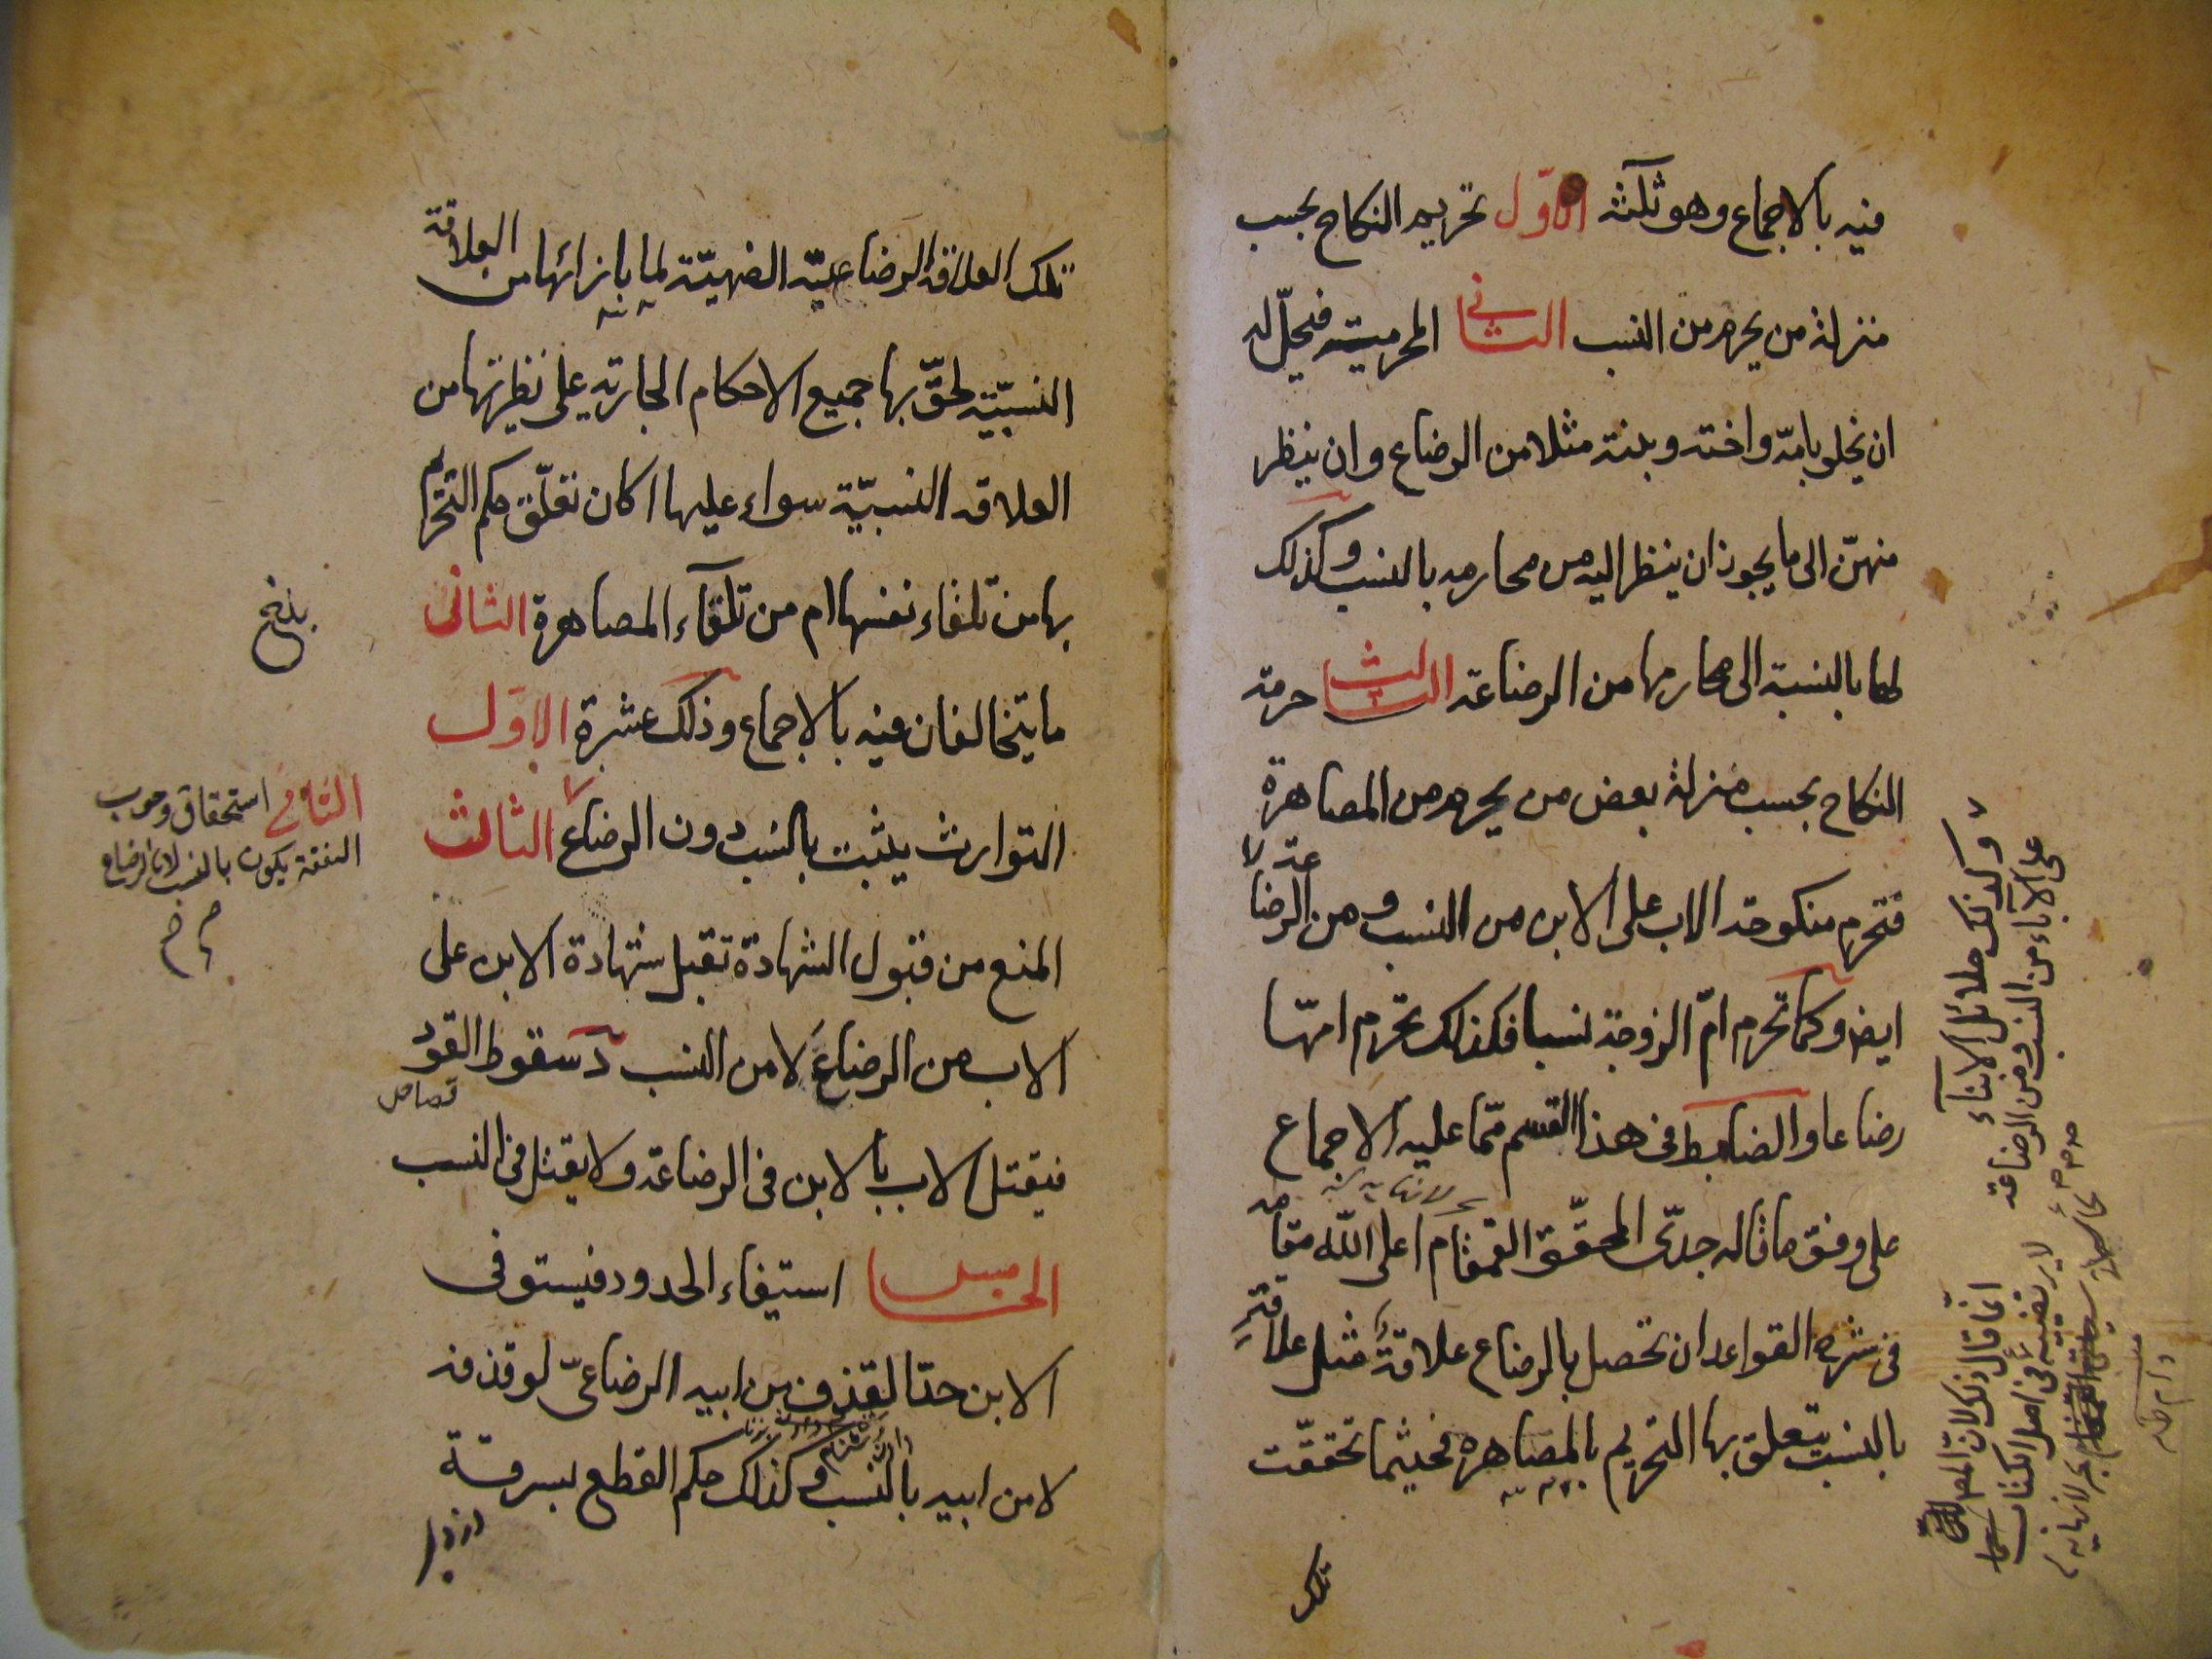 فيه بالاجماع وهو ثلثة الاوّل تحريم النكاح بحسب
منزلة من يحرم من النسب الثانى المحرمية فيحلّ له
ان يخلو بامّه واخته وبنته مثلا من الرضاع وان ينظر
منهنّ الى ما يجوز ان ينظر اليه من محارمه بالنسب وكذلك
لها بالنسبة الى محارمها من الرضاعة الثالث حرمة
النكاح بحسب منزلة بعض من يحرم من المصاهرة
فتحرم منكوحة الاب على الابن من النسب ومن الرضاعة
ايضا وكما تحرم امّ الزوجة نسبا فكذلك تحرم امّها
رضاعا والضابط فى هذا القسم ممّا عليه الاجماع
على وفق ما قاله جدّى المحقّق القمقام اعلى الله مقامه
فى شرح القواعد ان تحصل بالرضاع علاقة مثل علاقة
بالنسب يتعلق بها التحريم بالمصاهرة فحيثما تحققّت
تلك
وكذلك حلائل الابناء
على الآباء من النسب ومن الرضاعة
انما قال ذلك لان المص
تلك العلاقة الرضاعيّة الضهيّة لما بازائها من العلاقة
النسبيّة لحق بها جميع الاحكام الجارية على نظيرتها من
العلاقة النسبيّة سواء عليها اكان تعلّق حكم التحريم
بها من تلقاء نفسها ام من تلقآء المصاهرة الثانى
ما يتخالفان فيه بالاجماع وذلك عشرة الاوّل
التوارث يثبت بالنسب دون الرضاع الثالث
المنع من قبول الشهادة تقبل شهادة الابن على
الاب من الرضاع لا من النسب د سقوط القود
قصاص
فيقتل الاب بالابن فى الرضاعة ولا يقتل فى النسب
الخامس استيفاء الحدود فيستوفى
الابن حدّ القذف من ابيه الرضاعىّ لو قذفه
لا من ابيه بالنسب وكذلك حكم القطع بسرقة
بلغ
الثانى استحقاق وجوب
النفقة يكون بالنسب لا بالرضاع